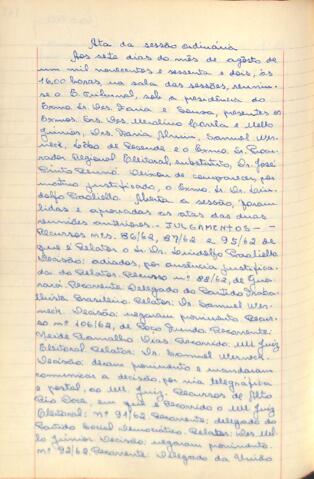 Ata da sessão ordinária
Aos sete dias do mês de agôsto de
um mil novecentos e sessenta e dois, às
16,00 horas, na sala das sessões, reuniu-
se o E. Tribunal, sob a presidência do
Exmo. Sr. Des. Faria e Sousa, presentes os
Exmos. Srs. Des. Merolino Corrêa e Mello
Júnior, Drs. Faria Alvim, Samuel Wer-
neck, Lôbo de Resende e o Exmo. Sr. Procu-
rador Regional Eleitoral, substituto, Dr. José
Pinto Renó. Deixou de comparecer, por
motivo justificado, o Exmo. Sr. Dr. Lin-
dolfo Paoliello. Aberta a sessão, foram
lidas e aprovadas as atas das duas
reuniões anteriores. - JULGAMENTOS - -
Recursos nrs. 86/62, 87/62 e 95/62 de
que é Relator o Sr. Dr. Lindolfo Paoliello
Decisão: adiados, por ausência justifica-
da do Relator. Recurso nº 88/62, de Gua-
rará. Recorrente Delegado do Partido Traba-
lhista Brasileiro. Relator: Dr. Samuel Wer-
neck. Decisão: negaram provimento. Recur-
so nº 106/62, de Poço Fundo. Recorrente:
Neide Carvalho Dias. Recorrido: MM. Juiz
Eleitoral. Relator: Dr. Samuel Werneck.
Decisão: deram provimento e mandaram
comunicar a decisão, por via telegráfica
e postal, ao MM. Juiz. Recursos de Alto
Rio Doce, em que é Recorrido o MM. Juiz
Eleitoral: nº 91/62. Recorrente: delegado do
Partido Social Democrático. Relator: Des. Mel-
lo Júnior. Decisão: negaram provimento.
nº 92/62. Recorrente: Delegado da União